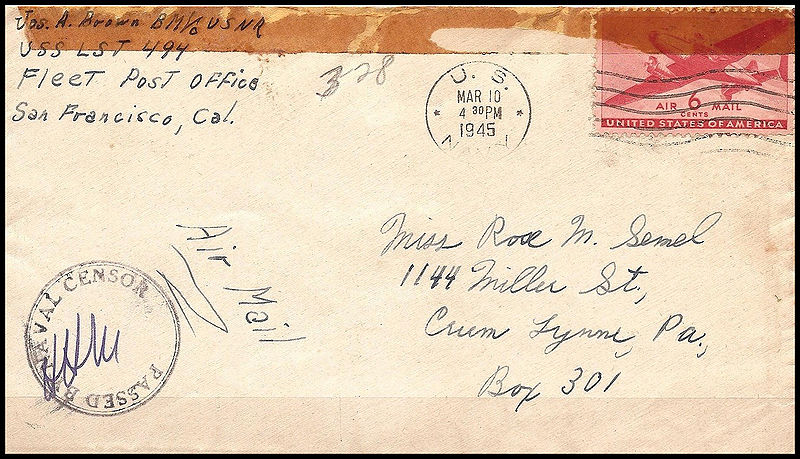 Jos. A. Brown BM1/c USNR
USS LST 494
Fleet Post Office
San Francisco, Cal.
328
U. S.
MAR 10
4 30 PM
1945
NAVY
AIR 6 MAIL
CENTS
UNITED STATES OF AMERICA
Air Mail
Miss Rose M. Semel
1144 Miller St.,
Crum Lynne, Pa.,
Box 301
PASSED BY NAVAL CENSOR